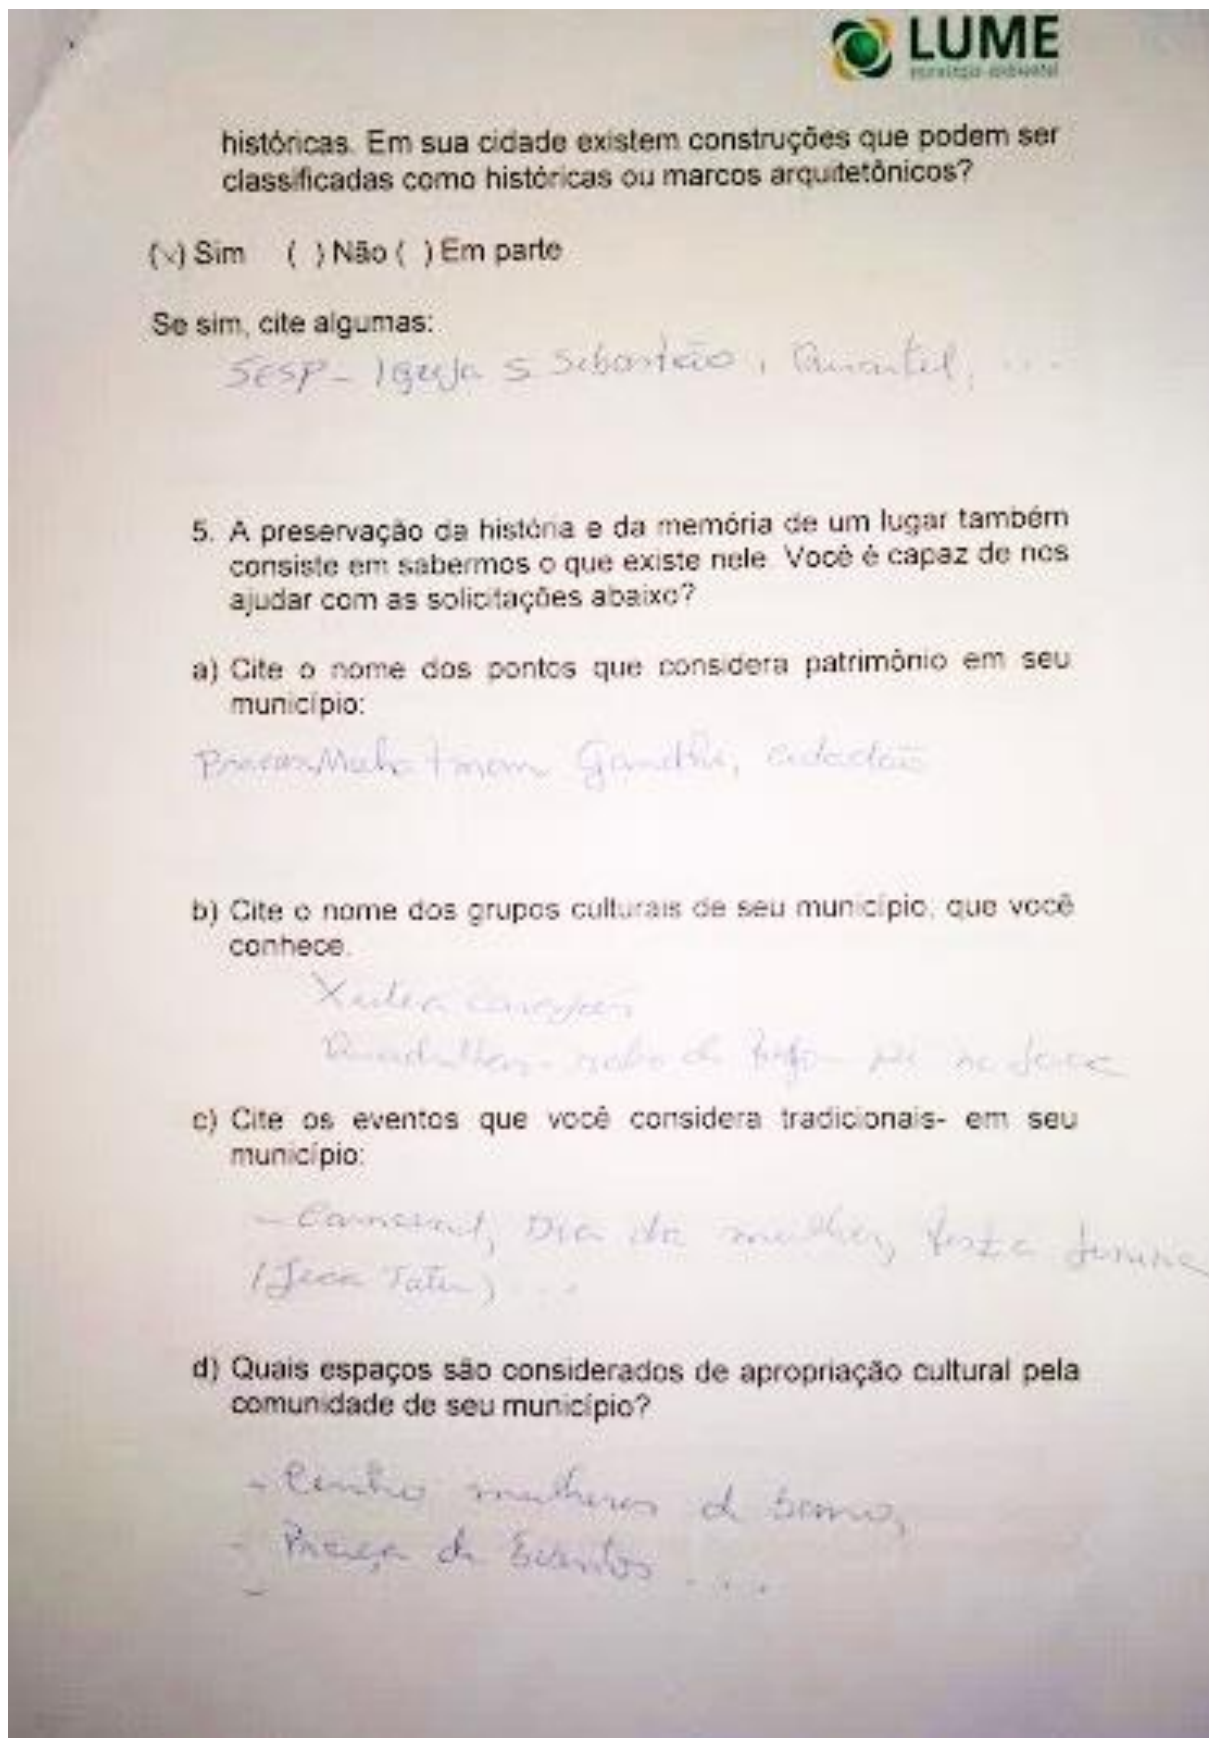 LUME
estratégia ambiental
históricas. Em sua cidade existem construções que podem ser
classificadas como históricas ou marcos arquitetônicos?
(x) Sim ( ) Não ( ) Em parte
Se sim, cite algumas:
SESP - Igreja S Sebastião, Quartel, ...
5. A preservação da história e da memória de um lugar também
consiste em sabermos o que existe nele. Você é capaz de nos
ajudar com as solicitações abaixo?
a) Cite o nome dos pontos que considera patrimônio em seu
município:
Gandhi, cidadão
b) Cite o nome dos grupos culturais de seu município, que você
conhece.
Quadrilhas - rabo de
c) Cite os eventos que você considera tradicionais- em seu
município:
- Carnaval, Dia da mulher, festa junina
(Jeca Tatu) ...
d) Quais espaços são considerados de apropriação cultural pela
comunidade de seu município?
- mulheres de
- Praça de Eventos ....
-